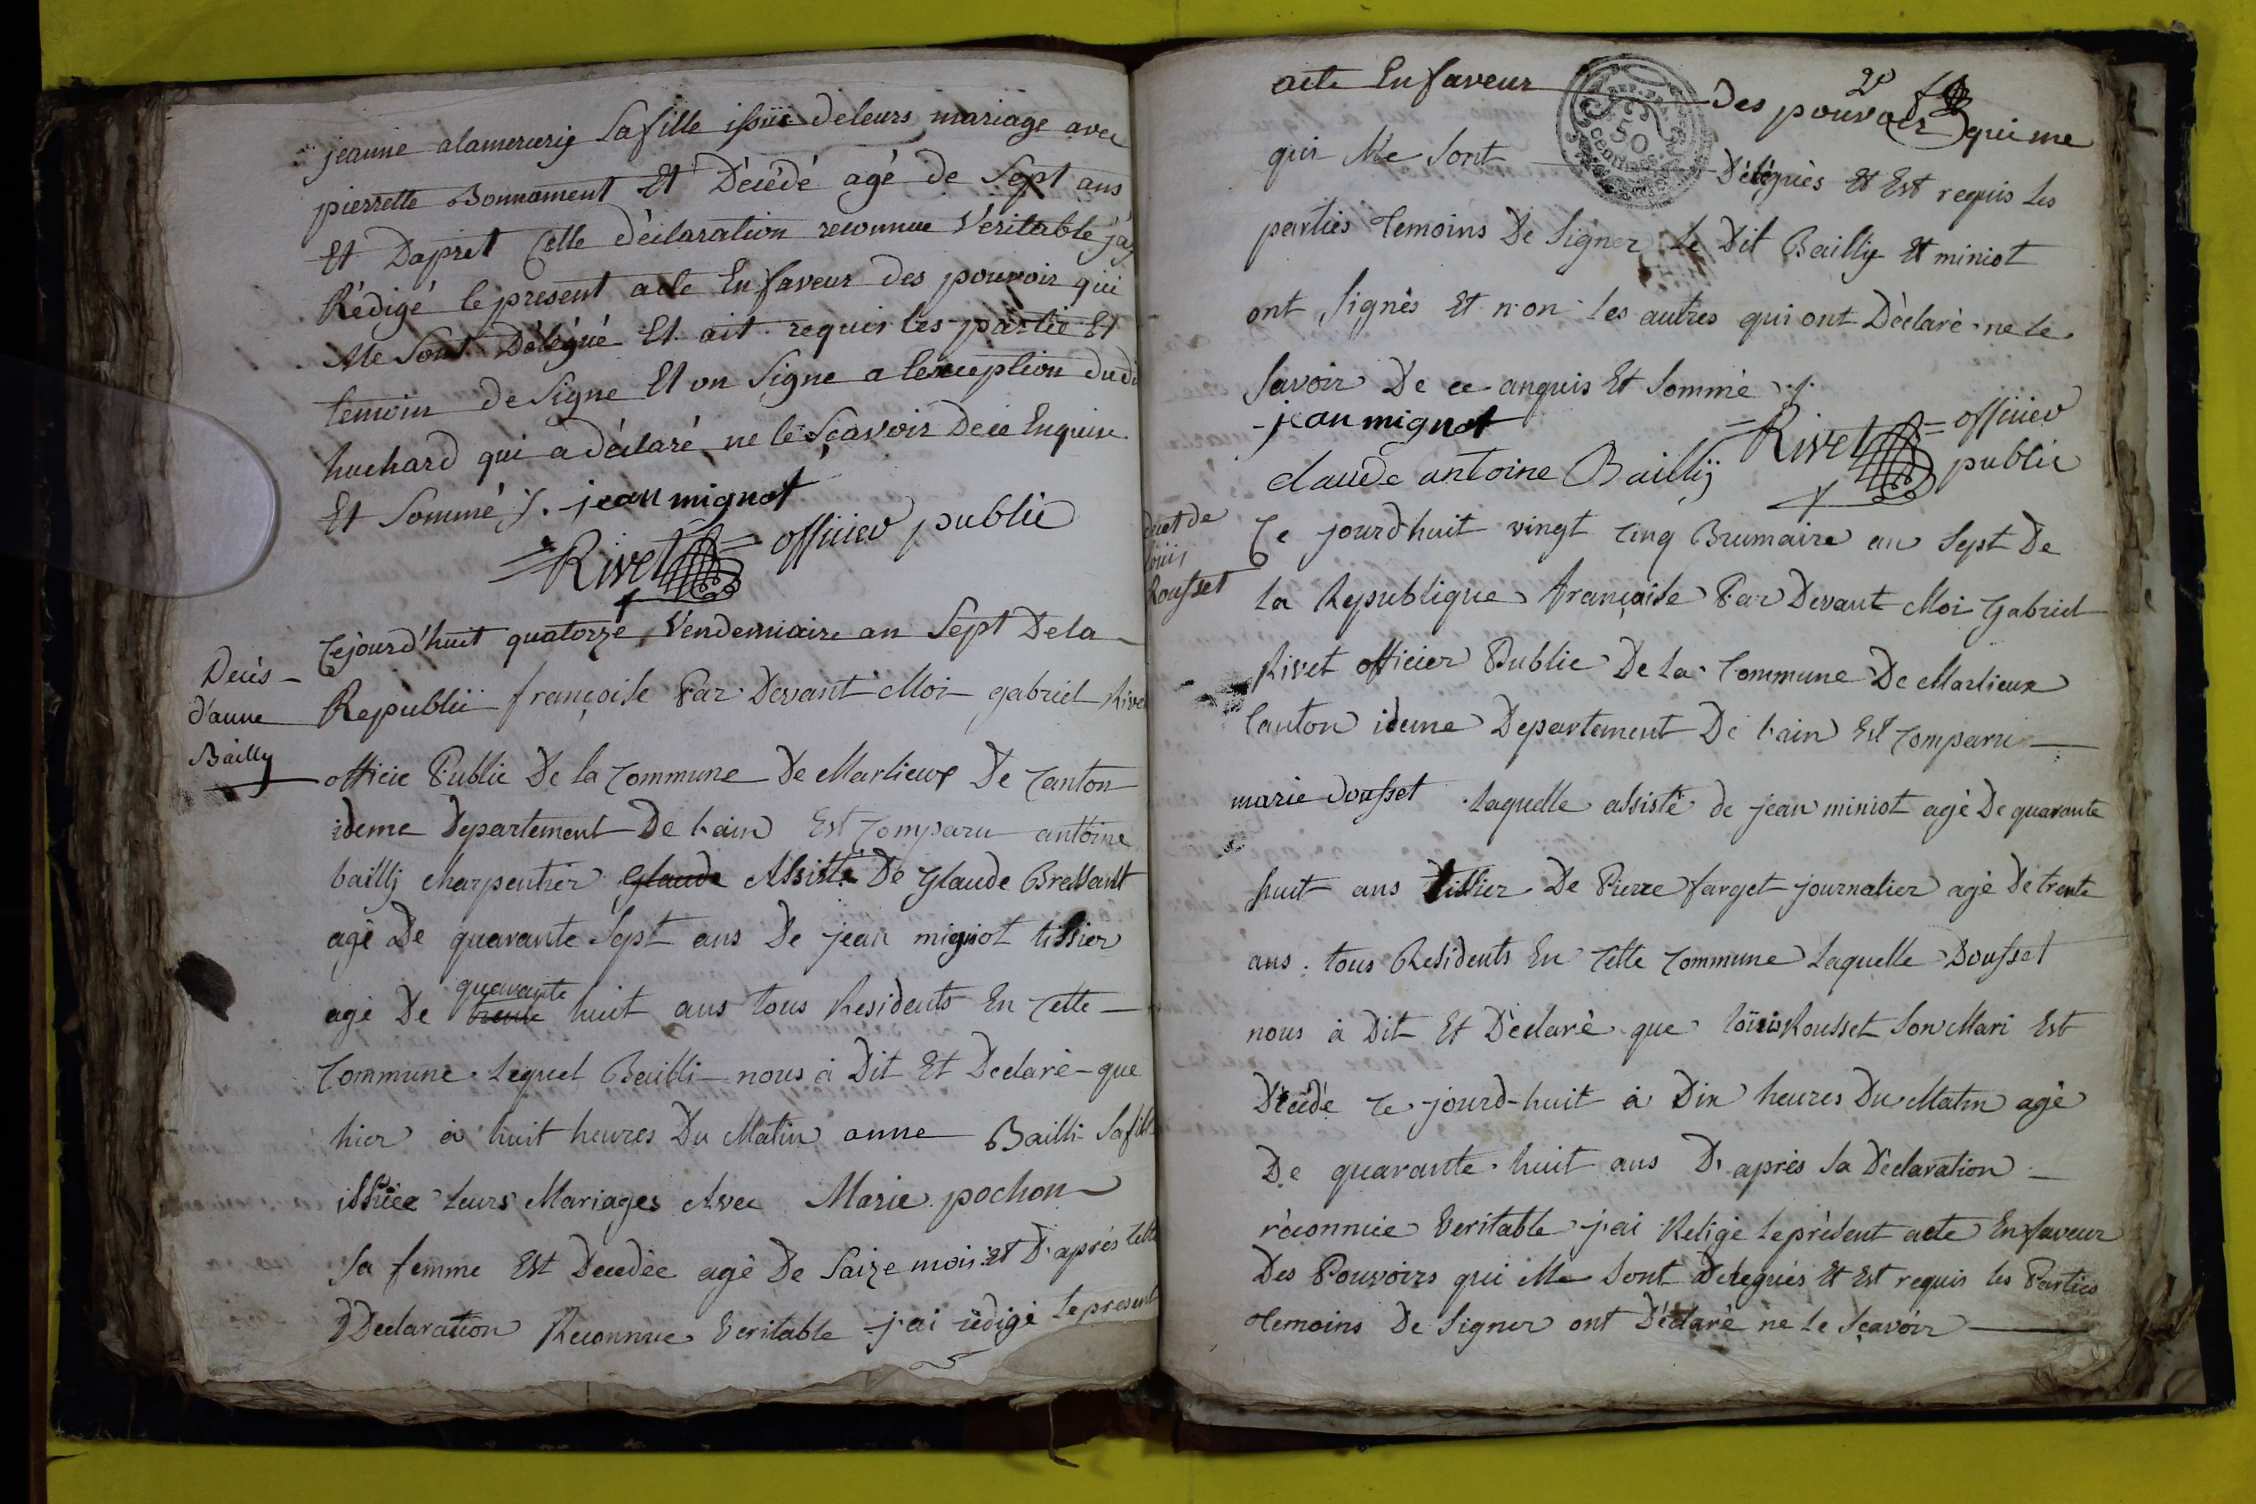 jeanne alamercerig Safille issüe deleurs mariage avec
pierrette Bonnament Et Décédé agé de Sept ans
Et Dapret Cette déclaration reconnue Véritable jay
Rédigé le present acte Enfaveur des pouvoir qui
Me Sont Délégué Et ait requis les partie Et
temoin de Signe Et on Signe a lexception dudi
huchard qui a déclaré ne le Sçavoir De ce Enquise
Et Sommé ./. jean mignot
Rivet officier public
Décès
d'anne
Bailly
Cejourd'huit quatorze Vendemiaire an Sept De la
Republii françoise Par Devant Moi gabriel Rivet
officie Public De la Commune De Marlieux De Canton
ideme Departement De l'ain Est Comparu antoine
bailly charpentier Glaude Assisté De Glaude Bressant
agé De quarante Sept ans De jean mignot tissier
quarante
agé De trente huit ans tous Residents En Cette
Commune Lequel Bailli nous à Dit Et Declaré que
hier à huit heures Du Matin anne Bailli Safille
issüee leurs Mariages Avec Marie pochon
Sa femme Est Decedée agé De Saize mois et D'après cette
DDeclaration Reconnue Veritable j'ai rédigé le present
acte Enfaveur des pouvoir qui me
qui Me Sont Délégués Et Est requis Les
parties Temoins De Signer Le Dit Bailly Et miniot
ont Signés Et non les autres qui ont Déclaré ne le
Savoir De ce anquis Et Sommé ./.
jean mignot
Rivet officier
public
claude antoine Bailly
louis
Rousset
Ce jourd'huit vingt Cinq Brumaire an Sept De
La Republique française Par Devant Moi Gabriel
Rivet officier Public De La Commune De Marlieux
Canton ideme Departement De l'ain Est Comparu
marie dousset Laquelle assisté de jean miniot agé De quarante
huit ans tissier De Pierre farget journalier agé De trente
ans tous Residents En Cette Commune Laquelle Dousset
nous à Dit Et Déclaré que loüis Rousset Son Mari Est
Décédé Ce jourd-huit à Dix heures Du Matin agé
De quarante huit ans D'après Sa Déclaration
réconnüe Veritable j'ai Religé le présent acte En faveur
Des Pouvoirs qui Me Sont Delegués Et Est requis les Parties
Temoins De Signer ont Déclaré ne le Sçavoir